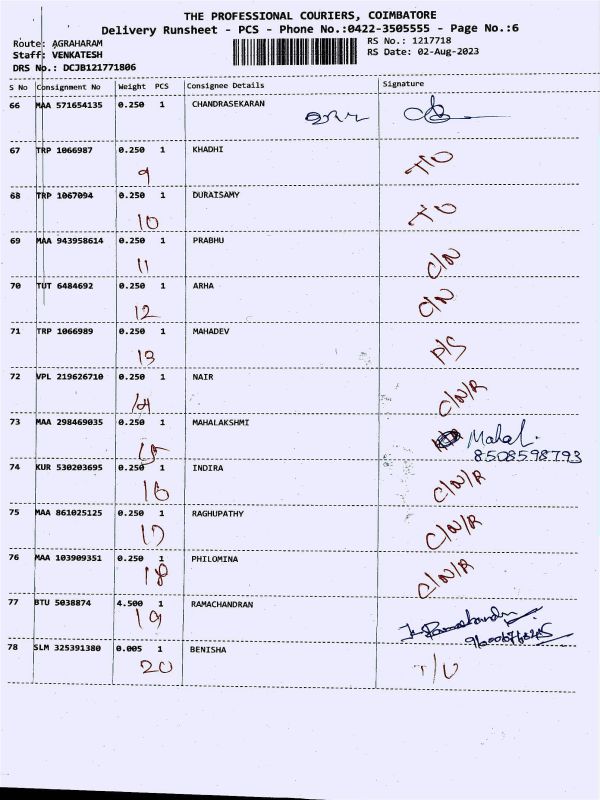 THE PROFESSIONAL COURIERS, COIMBATORE
Delivery Runsheet - PCS - Phone No.:0422-3505555 - Page No.:6
Route: AGRAHARAM RS No.: 1217718
Staff: VENKATESH RS Date: 02-Aug-2023
DRS No.: DCJB121771806
S No Consignment No Weight PCS Consignee Details Signature
66 MAA 571654135 0.250 1 CHANDRASEKARAN
67 TRP 1066987 0.250 1 KHADHI
9 T/O
68 TRP 1067094 0.250 1 DURAISAMY
10 T/O
69 MAA 943958614 0.250 1 PRABHU
11 C/N
70 TUT 6484692 0.250 1 ARHA
12 C/N
71 TRP 1066989 0.250 1 MAHADEV
13 P/S
72 VPL 219626710 0.250 1 NAIR
14 C/N/R
73 MAA 298469035 0.250 1 MAHALAKSHMI
15 Mahal.
8508598793
74 KUR 530203695 0.250 1 INDIRA
16 C/N/R
75 MAA 861025125 0.250 1 RAGHUPATHY
17 C/N/R
76 MAA 103909351 0.250 1 PHILOMINA
18 C/N/R
77 BTU 5038874 4.500 1 RAMACHANDRAN
19
78 SLM 325391380 0.005 1 BENISHA
20